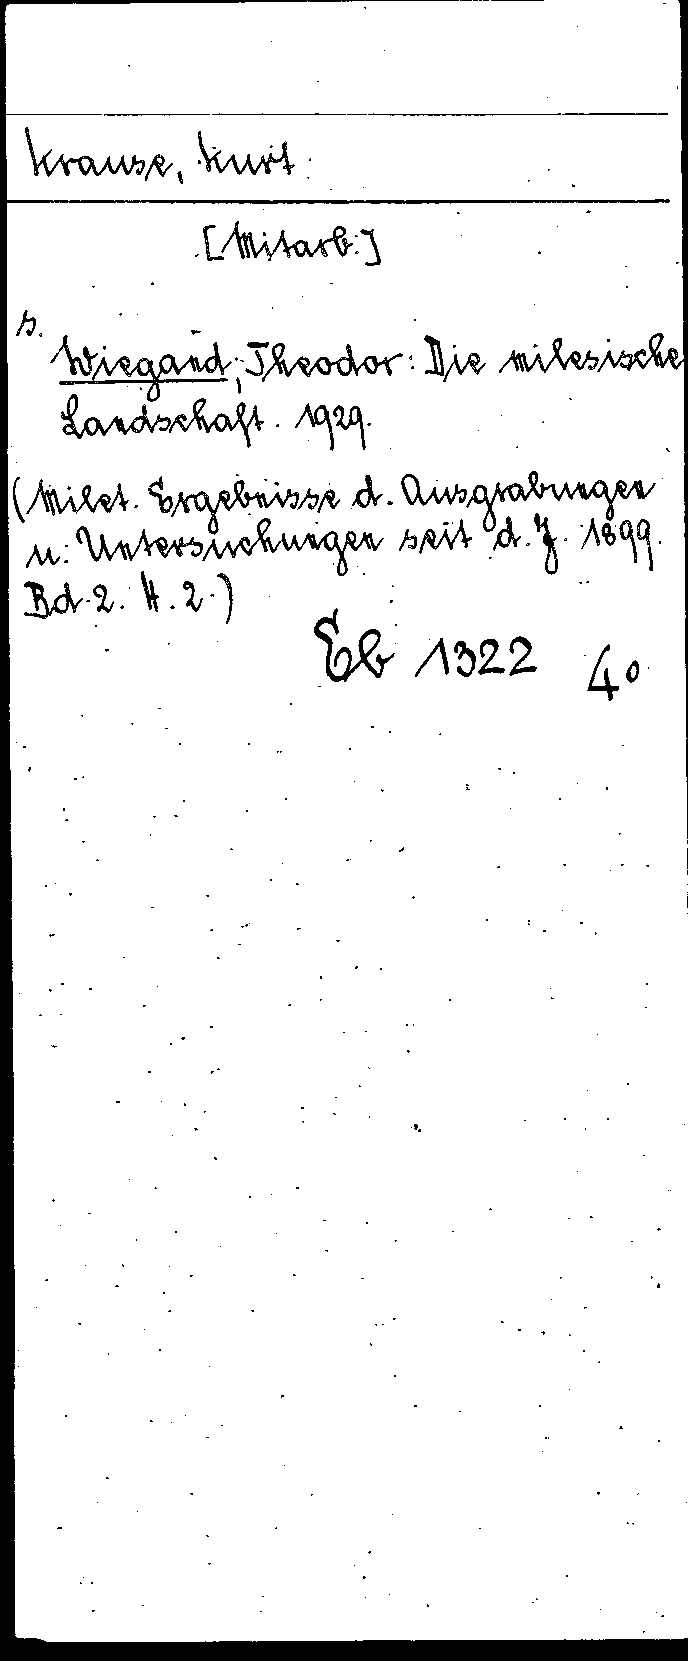 Krause, Kurt
[Mitarb.]
s.
Wiegand, Theodor: Die milesische
Landschaft. 1929.
(Milet. Ergebnisse d. Ausgrabungen
u. Untersuchungen seit d. J. 1899.
Bd. 2. H. 2.)
Eb 1322 4°